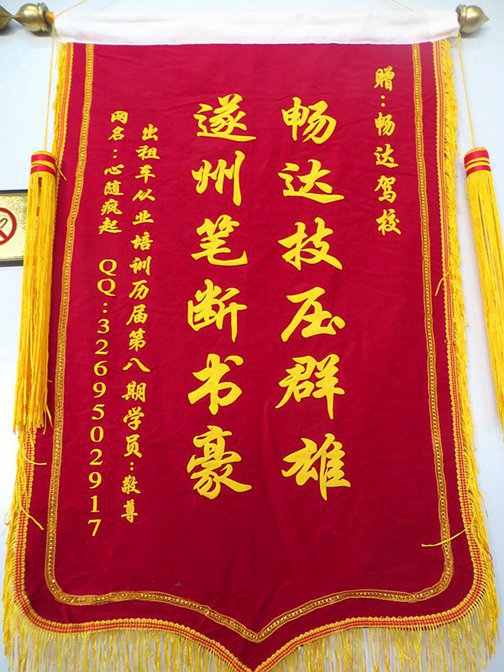 赠：畅达驾校
畅达技压群雄
遂州笔断书豪
出租车从业培训历届第八期学员：敬尊
网名：心随疯起 QQ：3269502917